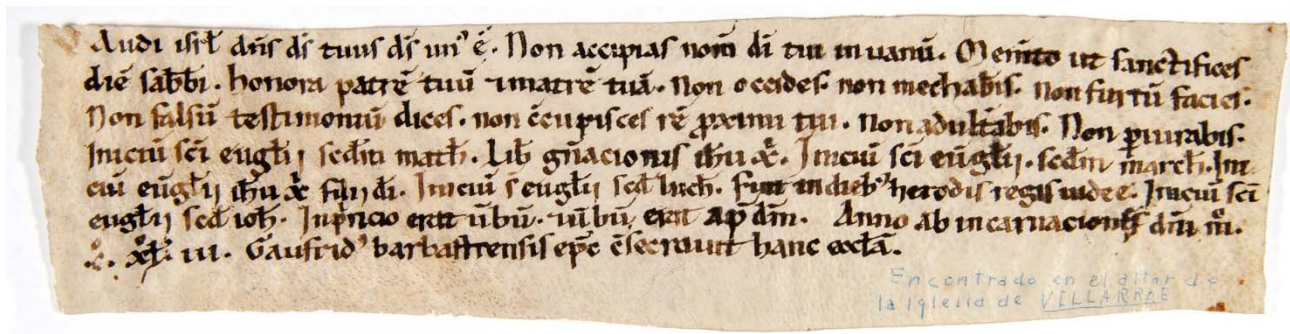 Audi isrł dñs ds̄ tuus ds̄ un᾽ ē. Non accipias nom̄ dī tui in uanū. Mem̄to ut sanctifices
diē sab̄bi. honora patrē tuū ⁊ matrē tuā. Non occides. non mechabis. non furtū facies.
Non falsū testimoniū dices. non c̄cupisces rē ꝓximi tui. Non adult̄abis. Non ꝑiurabis.
Iniciū sc̄i eugłij sedm̄ math̄. Lib̄ gn̄acionis ih̄u xp̄. Iniciū sc̄i eūgłij. sedm̄ march̄. Ini-
ciū eūgłij ih̄u xp̄ filij dī. Iniciū s̄ eugłij sed̄ luch̄. Fuit in dieb᾽ herodis regis iudee. Iniciū sc̄i
eugłij sed̄ ioh̄. In p̄ncio erat ūbū. ⁊ ūbū erat ap̄ dm̄. Anno ab incarnacione dn̄i m̊.
c̊. xł. iii. Gaufrid᾽ barbastrensis ep̄c c̄secrauit hanc eccłā.
Encontrado en el altar de
la Iglesia de VILLARRUE